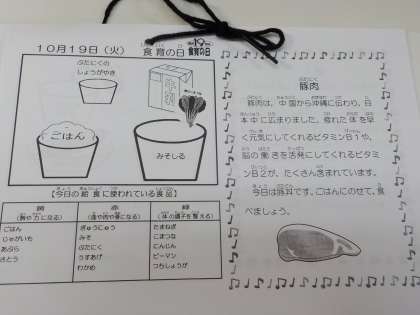 10月19日(火) 食育の日
毎月19日は
食育の日
ぶたにくの
しょうがやき
牛乳
ごはん
みそしる
【今日の給食に使われている食品】
黄
(熱や力になる)
ごはん
じゃがいも
あぶら
さとう
赤
(血や肉や骨になる)
ぎゅうにゅう
みそ
ぶたにく
うすあげ
わかめ
緑
(体の調子を整える)
たまねぎ
こまつな
にんじん
ピーマン
つちしょうが
豚肉
豚肉は、中国から沖縄に伝わり、日
本中に広まりました。疲れた体を早
く元気にしてくれるビタミンB1や、
脳の働きを活発にしてくれるビタミ
ンB2が、たくさん含まれています。
今日は豚丼です。ごはんにのせて、食
べましょう。